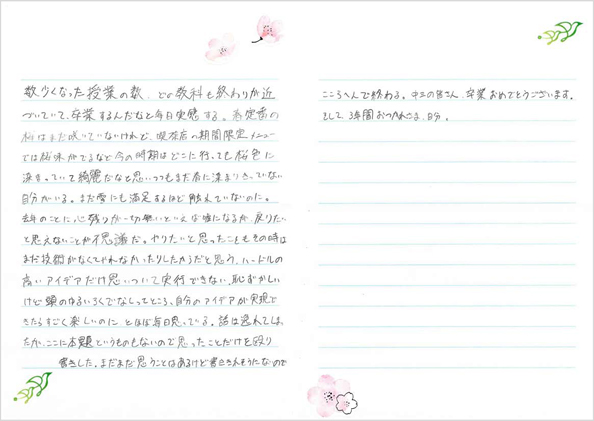 数少なくなった授業の数、どの教科も終わりが近
づいていて、卒業するんだなと毎日実感する。
桜はまだ咲いていないけれど、喫茶店の期間限定メニュー
では桜味がでるなど今の時期はどこに行っても桜色に
染まっていて綺麗だなと思いつつもまだ春に染まりきっていない
自分がいる。まだ雪にも満足するほど触れていないのに。
去年のことに心残りが一切無いといえば嘘になるが、戻りたい
と思えないことが不思議だ。やりたいと思ったこともその時は
まだ技術がなくてやれなかったりしたからだと思う。ハードルの
高いアイデアだけ思いついて実行できない、恥ずかしい
けど頭のゆるいろくでなしってところ。自分のアイデアが実現で
きたらすごく楽しいのに とほぼ毎日思っている。話は逸れてしまっ
たが、ここに本題というものもないので思ったことだけを殴り
書きした。まだまだ思うことはあるけど書ききれそうにないので
こころへんで終わる。中三の皆さん、卒業おめでとうございます。
そして、3年間おつかれさま、自分。